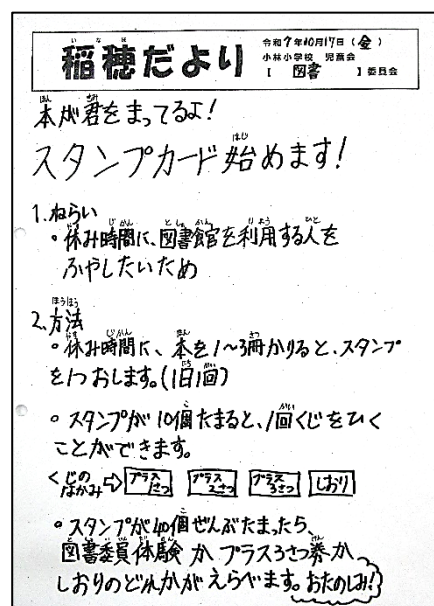 稲穂だより
令和7年10月17日(金)
小林小学校 児童会
【 図書 】委員会
本が君をまってるよ!
スタンプカード始めます!
1.ねらい
○休み時間に、図書館を利用する人を
ふやしたいため
2.方法
○休み時間に、本を1~3冊かりると、スタンプ
を1つおします。(1日1回)
○スタンプが10個たまると、1回くじをひく
ことができます。
くじのなかみ⇨ プラス1さつ プラス2さつ プラス3さつ しおり
○スタンプが40個ぜんぶたまったら、
図書委員体験か、プラス3さつ券か、
しおりのどれかがえらべます。おたのしみ!